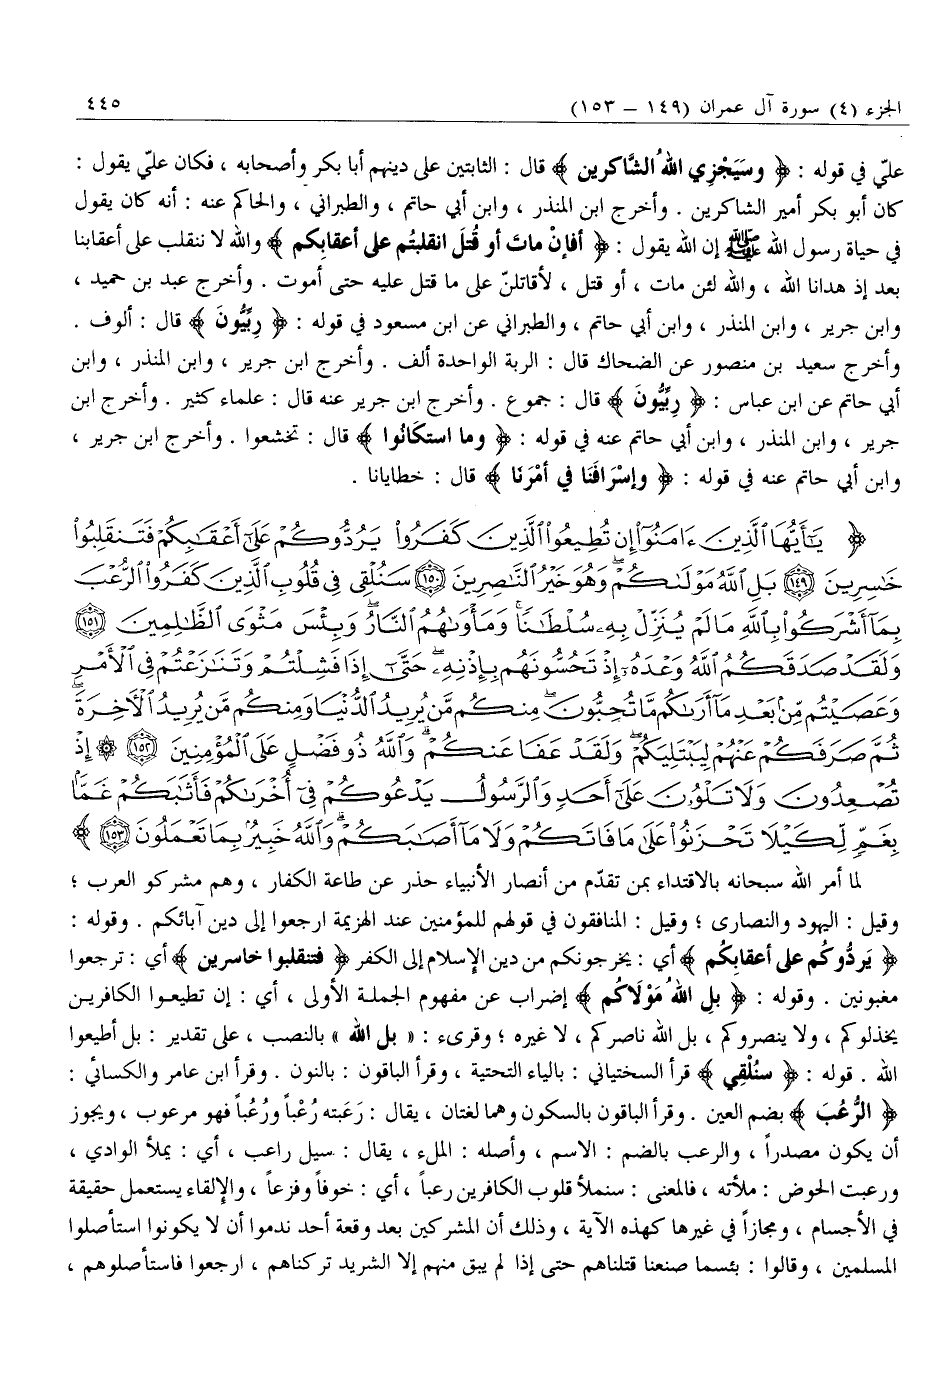 الجزء (٤) سورة آل عمران (١٤٩ – ١٥٣) ٤٤٥
عليّ في قوله : ﴿ وسَيَجْزِي اللهُ الشَّاكرين ﴾ قال : الثابتين على دينهم أبا بكر وأصحابه ، فكان عليّ يقول :
كان أبو بكر أمير الشاكرين . وأخرج ابن المنذر ، وابن أبي حاتم ، والطبراني ، والحاكم عنه : أنه كان يقول
في حياة رسول الله ﷺ إن الله يقول : ﴿ أفإنْ ماتَ أو قُتلَ انقلبتُم على أعقابِكم ﴾ والله لا ننقلب على أعقابنا
بعد إذ هدانا الله ، والله لئن مات ، أو قتل ، لأقاتلنّ على ما قتل عليه حتى أموت . وأخرج عبد بن حميد ،
وابن جرير ، وابن المنذر ، وابن أبي حاتم ، والطبراني عن ابن مسعود في قوله : ﴿ رِبِّيُّونَ ﴾ قال : ألوف .
وأخرج سعيد بن منصور عن الضحاك قال : الربة الواحدة ألف . وأخرج ابن جرير ، وابن المنذر ، وابن
أبي حاتم عن ابن عباس : ﴿ رِبِّيُّونَ ﴾ قال : جموع . وأخرج ابن جرير عنه قال : علماء كثير . وأخرج ابن
جرير ، وابن المنذر ، وابن أبي حاتم عنه في قوله : ﴿ وما استكَانُوا ﴾ قال : تخشعوا . وأخرج ابن جرير ،
وابن أبي حاتم عنه في قوله : ﴿ وإسْرَافَنَا في أمْرِنَا ﴾ قال : خطايانا .
﴿ يَٰٓأَيُّهَا ٱلَّذِينَ ءَامَنُوٓا۟ إِن تُطِيعُوا۟ ٱلَّذِينَ كَفَرُوا۟ يَرُدُّوكُمْ عَلَىٰٓ أَعْقَٰبِكُمْ فَتَنقَلِبُوا۟
خَٰسِرِينَ ١٤٩ بَلِ ٱللَّهُ مَوْلَىٰكُمْ ۖ وَهُوَ خَيْرُ ٱلنَّٰصِرِينَ ١٥٠ سَنُلْقِى فِى قُلُوبِ ٱلَّذِينَ كَفَرُوا۟ ٱلرُّعْبَ
بِمَآ أَشْرَكُوا۟ بِٱللَّهِ مَا لَمْ يُنَزِّلْ بِهِۦ سُلْطَٰنًا ۖ وَمَأْوَىٰهُمُ ٱلنَّارُ ۚ وَبِئْسَ مَثْوَى ٱلظَّٰلِمِينَ ١٥١
وَلَقَدْ صَدَقَكُمُ ٱللَّهُ وَعْدَهُۥٓ إِذْ تَحُسُّونَهُم بِإِذْنِهِۦ ۖ حَتَّىٰٓ إِذَا فَشِلْتُمْ وَتَنَٰزَعْتُمْ فِى ٱلْأَمْرِ
وَعَصَيْتُم مِّنۢ بَعْدِ مَآ أَرَىٰكُم مَّا تُحِبُّونَ ۚ مِنكُم مَّن يُرِيدُ ٱلدُّنْيَا وَمِنكُم مَّن يُرِيدُ ٱلْءَاخِرَةَ ۚ
ثُمَّ صَرَفَكُمْ عَنْهُمْ لِيَبْتَلِيَكُمْ ۖ وَلَقَدْ عَفَا عَنكُمْ ۗ وَٱللَّهُ ذُو فَضْلٍ عَلَى ٱلْمُؤْمِنِينَ ١٥٢ ۞ إِذْ
تُصْعِدُونَ وَلَا تَلْوُۥنَ عَلَىٰٓ أَحَدٍ وَٱلرَّسُولُ يَدْعُوكُمْ فِىٓ أُخْرَىٰكُمْ فَأَثَٰبَكُمْ غَمًّۢا
بِغَمٍّ لِّكَيْلَا تَحْزَنُوا۟ عَلَىٰ مَا فَاتَكُمْ وَلَا مَآ أَصَٰبَكُمْ ۗ وَٱللَّهُ خَبِيرٌۢ بِمَا تَعْمَلُونَ ١٥٣ ﴾
لما أمر الله سبحانه بالاقتداء بمن تقدّم من أنصار الأنبياء حذر عن طاعة الكفار ، وهم مشركو العرب ؛
وقيل : اليهود والنصارى ؛ وقيل : المنافقون في قولهم للمؤمنين عند الهزيمة ارجعوا إلى دين آبائكم . وقوله :
﴿ يَردُّوكُم على أعقابِكُم ﴾ أي : يخرجونكم من دين الإسلام إلى الكفر ﴿ فتنقلبوا خاسرين ﴾ أي : ترجعوا
مغبونين . وقوله : ﴿ بلِ اللهُ مَوْلَاكُم ﴾ إضراب عن مفهوم الجملة الأولى ، أي : إن تطيعوا الكافرين
يخذلوكم ، ولا ينصروكم ، بل الله ناصركم ، لا غيره ؛ وقرىء : « بل الله » بالنصب ، على تقدير : بل أطيعوا
الله . قوله : ﴿ سنُلْقِي ﴾ قرأ السختياني : بالياء التحتية ، وقرأ الباقون : بالنون . وقرأ ابن عامر والكسائي :
﴿ الرُّعُبَ ﴾ بضم العين . وقرأ الباقون بالسكون وهما لغتان ، يقال : رَعَبته رُعْباً ورُعُباً فهو مرعوب ، ويجوز
أن يكون مصدراً ، والرعب بالضم : الاسم ، وأصله : الملء ، يقال : سيل راعب ، أي : يملأ الوادي ،
ورعبت الحوض : ملأته ، فالمعنى : سنملأ قلوب الكافرين رعباً ، أي : خوفاً وفزعاً ، والإلقاء يستعمل حقيقة
في الأجسام ، ومجازاً في غيرها كهذه الآية ، وذلك أن المشركين بعد وقعة أحد ندموا أن لا يكونوا استأصلوا
المسلمين ، وقالوا : بئسما صنعنا قتلناهم حتى إذا لم يبق منهم إلا الشريد تركناهم ، ارجعوا فاستأصلوهم ،